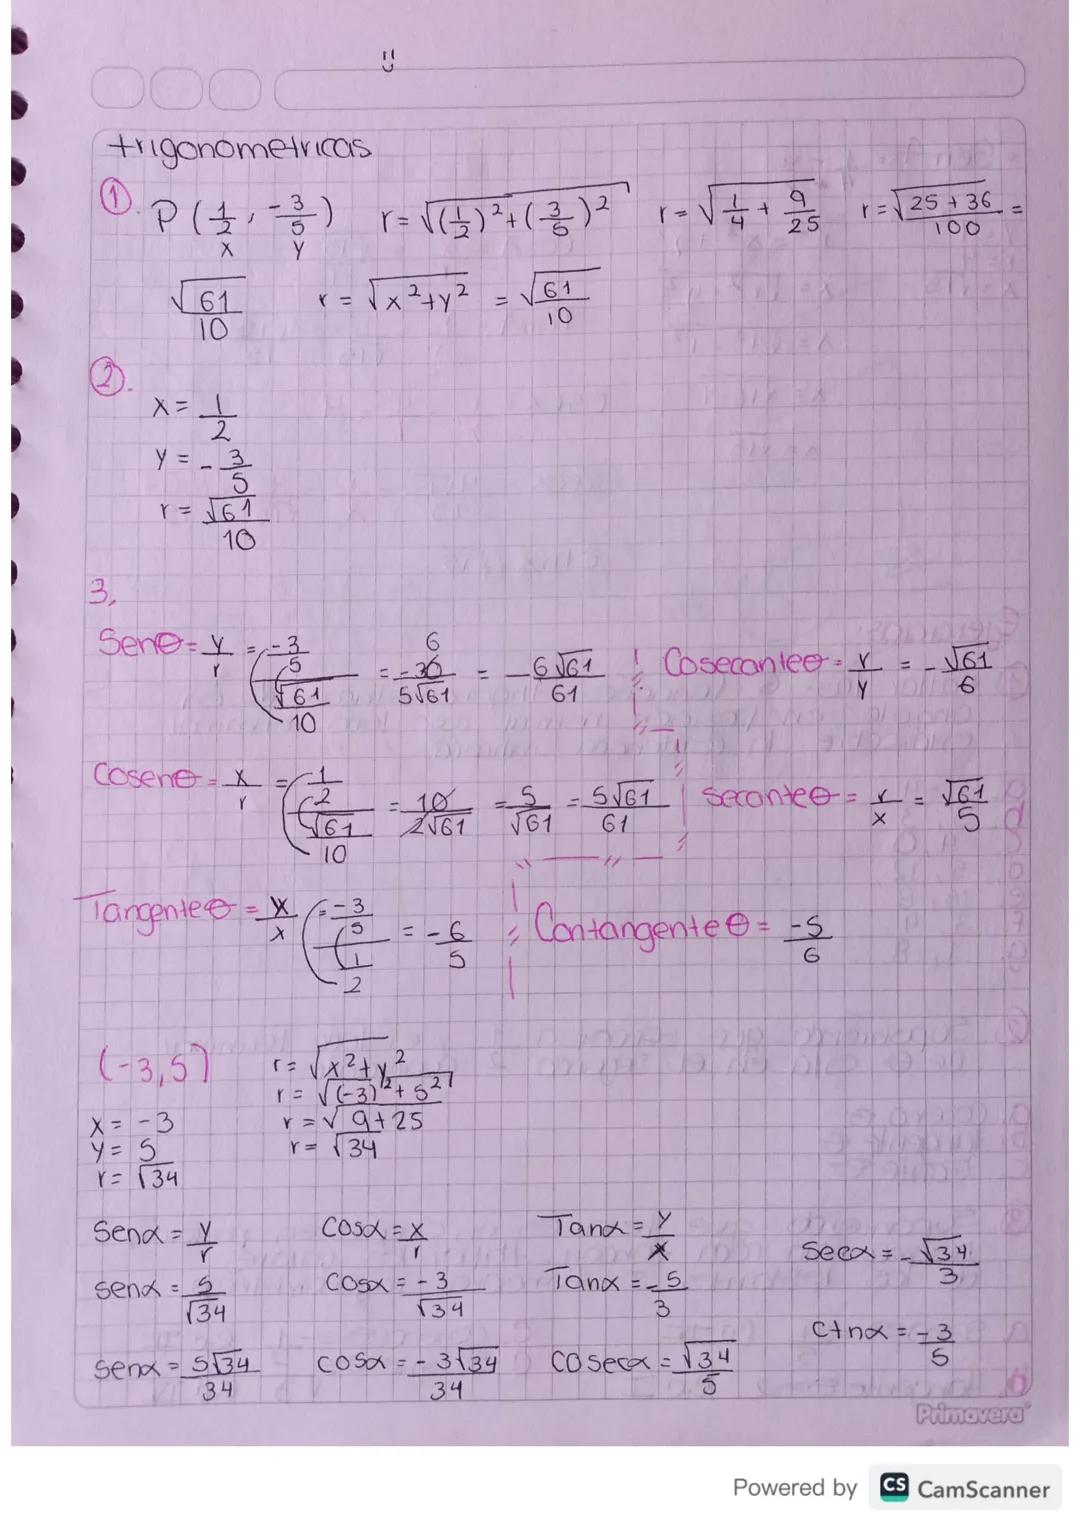 trigonometricas
① P (1/2, -3/5) r = √((1/2)² + (3/5)²) r = √(1/4 + 9/25) r = √((25 + 36)/100) =
x y
√61/10 r = √(x² + y²) = √61/10
②.
x = 1/2
y = -3/5
r = √61/10
3.
Senθ = y/r = (-3/5)/(√61/10) = -30/5√61 6 = -6√61/61 Cosecanteθ = r/y = -√61/6
Cosenθ = x/r = (1/2)/(√61/10) = 10/2√61 = 5/√61 = 5√61/61 Secanteθ = r/x = √61/5
Tangenteθ = y/x = (-3/5)/(1/2) = -6/5 Contangenteθ = -5/6
(-3,5) r = √(x² + y²)
r = √((-3)² + 5²)
x = -3 r = √(9+25)
y = 5 r = √34
r = √34
Senα = y/r Cosα = x/r Tanα = y/x Secα = -√34/3
senα = 5/√34 Cosα = -3/√34 Tanα = -5/3
Ctnα = -3/5
senα = 5√34/34 cosα = -3√34/34 COsecα = √34/5
Primavera
Powered by CS CamScanner